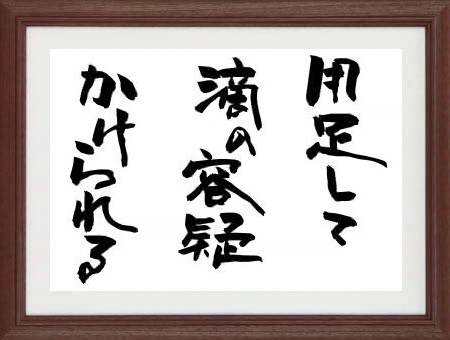 用足して
滴の容疑
かけられる